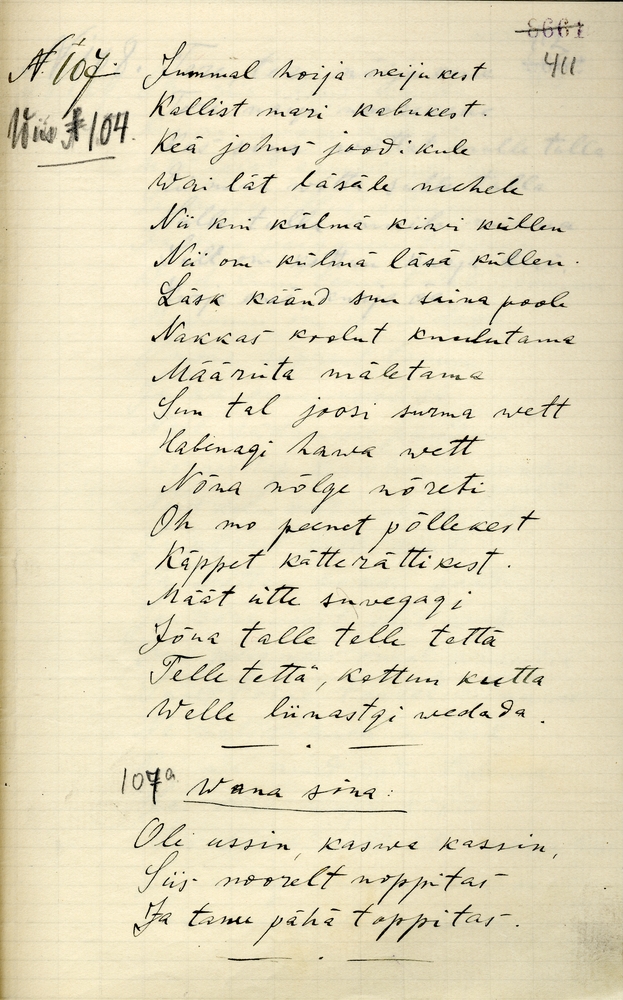 8661
411
No 107.
Wiis No 104.
Jummal hoija neijukest
Kallist mari kabukest.
Keä johus joodikule
Wai lät läsäle mehele
Nii kui külmä kiwi küllen
Nii om külmä läsä küllen.
Läsk käänd suu saina poole
Nakkas koolut kuulutama
Määriita mäletama
Suu tal joosi surma wett
Habenagi hawa wett
Nõna nõlge nõreti
Oh mo peenet põllekest
Käppet kätterättikest.
Määt ütte suvegagi
Jõna talle telle tettä
Telle tettä, kattun kutta
Welle liinastgi wedada.
107a Wana sõna:
Ole ussin, kaswa kassin,
Siis noorelt noppitas
Ja tanu pähä toppitas.